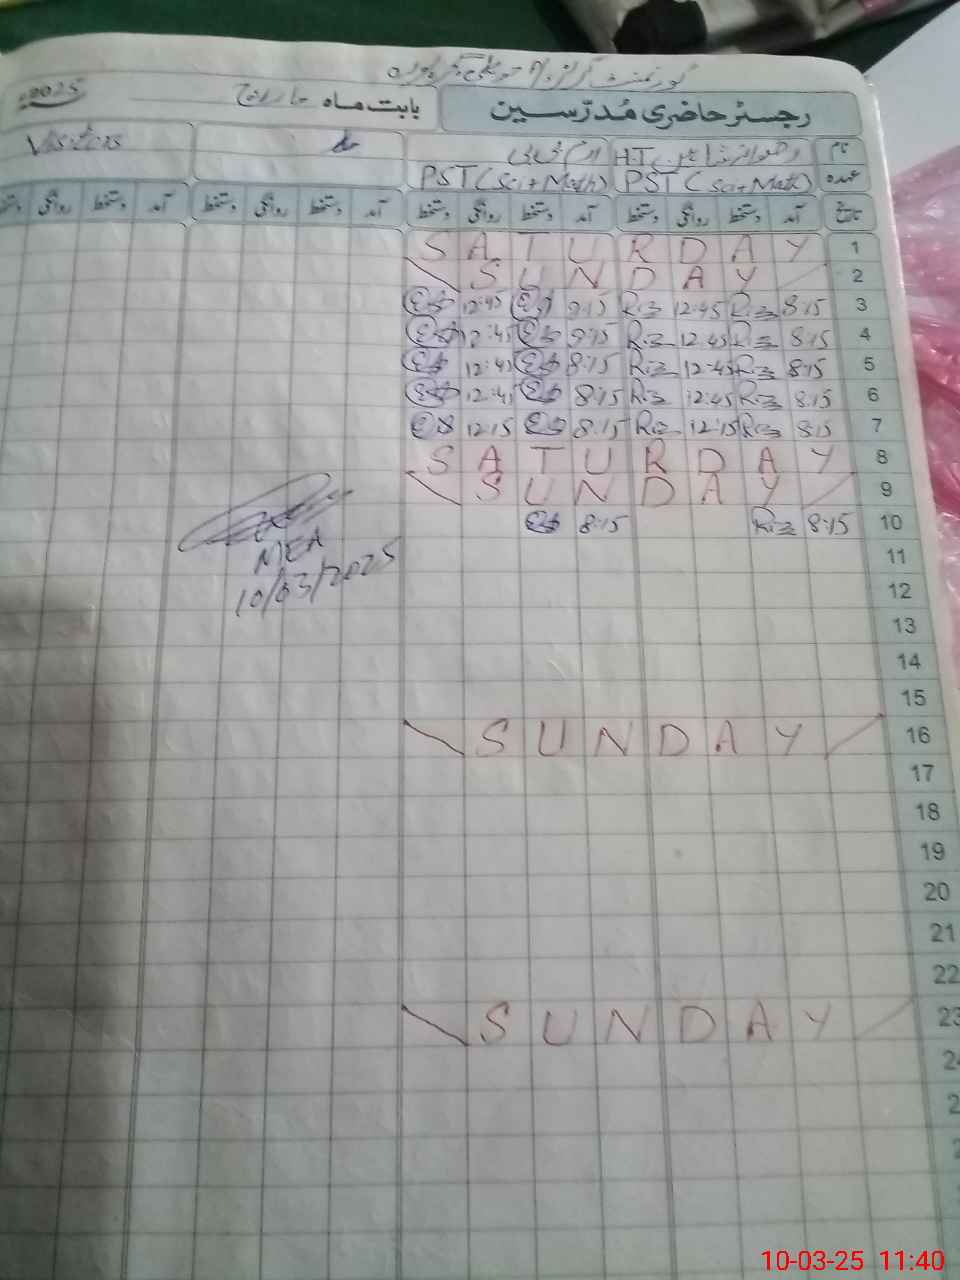 گورنمنٹ گرلز
رجسٹر حاضری مُدرّسین بابت ماہ مارچ 2025
نام H.T Visitors
عہدہ PST (Sci+Math) PST (Sci+Math)
تاریخ آمد دستخط روانگی دستخط آمد دستخط روانگی دستخط آمد دستخط روانگی دستخط آمد دستخط روانگی دستخط
SATURDAY 1
SUNDAY 2
12:45 8:15 Riz 12:45 Riz 8:15 3
12:45 8:15 Riz 12:45 Riz 8:15 4
12:45 8:15 Riz 12:45 Riz 8:15 5
12:45 8:15 Riz 12:45 Riz 8:15 6
12:15 8:15 Riz 12:15 Riz 8:15 7
SATURDAY 8
SUNDAY 9
8:15 Riz 8:15 10
MEA
10/03/2025
11
12
13
14
15
SUNDAY 16
17
18
19
20
21
22
SUNDAY 23
10-03-25 11:40